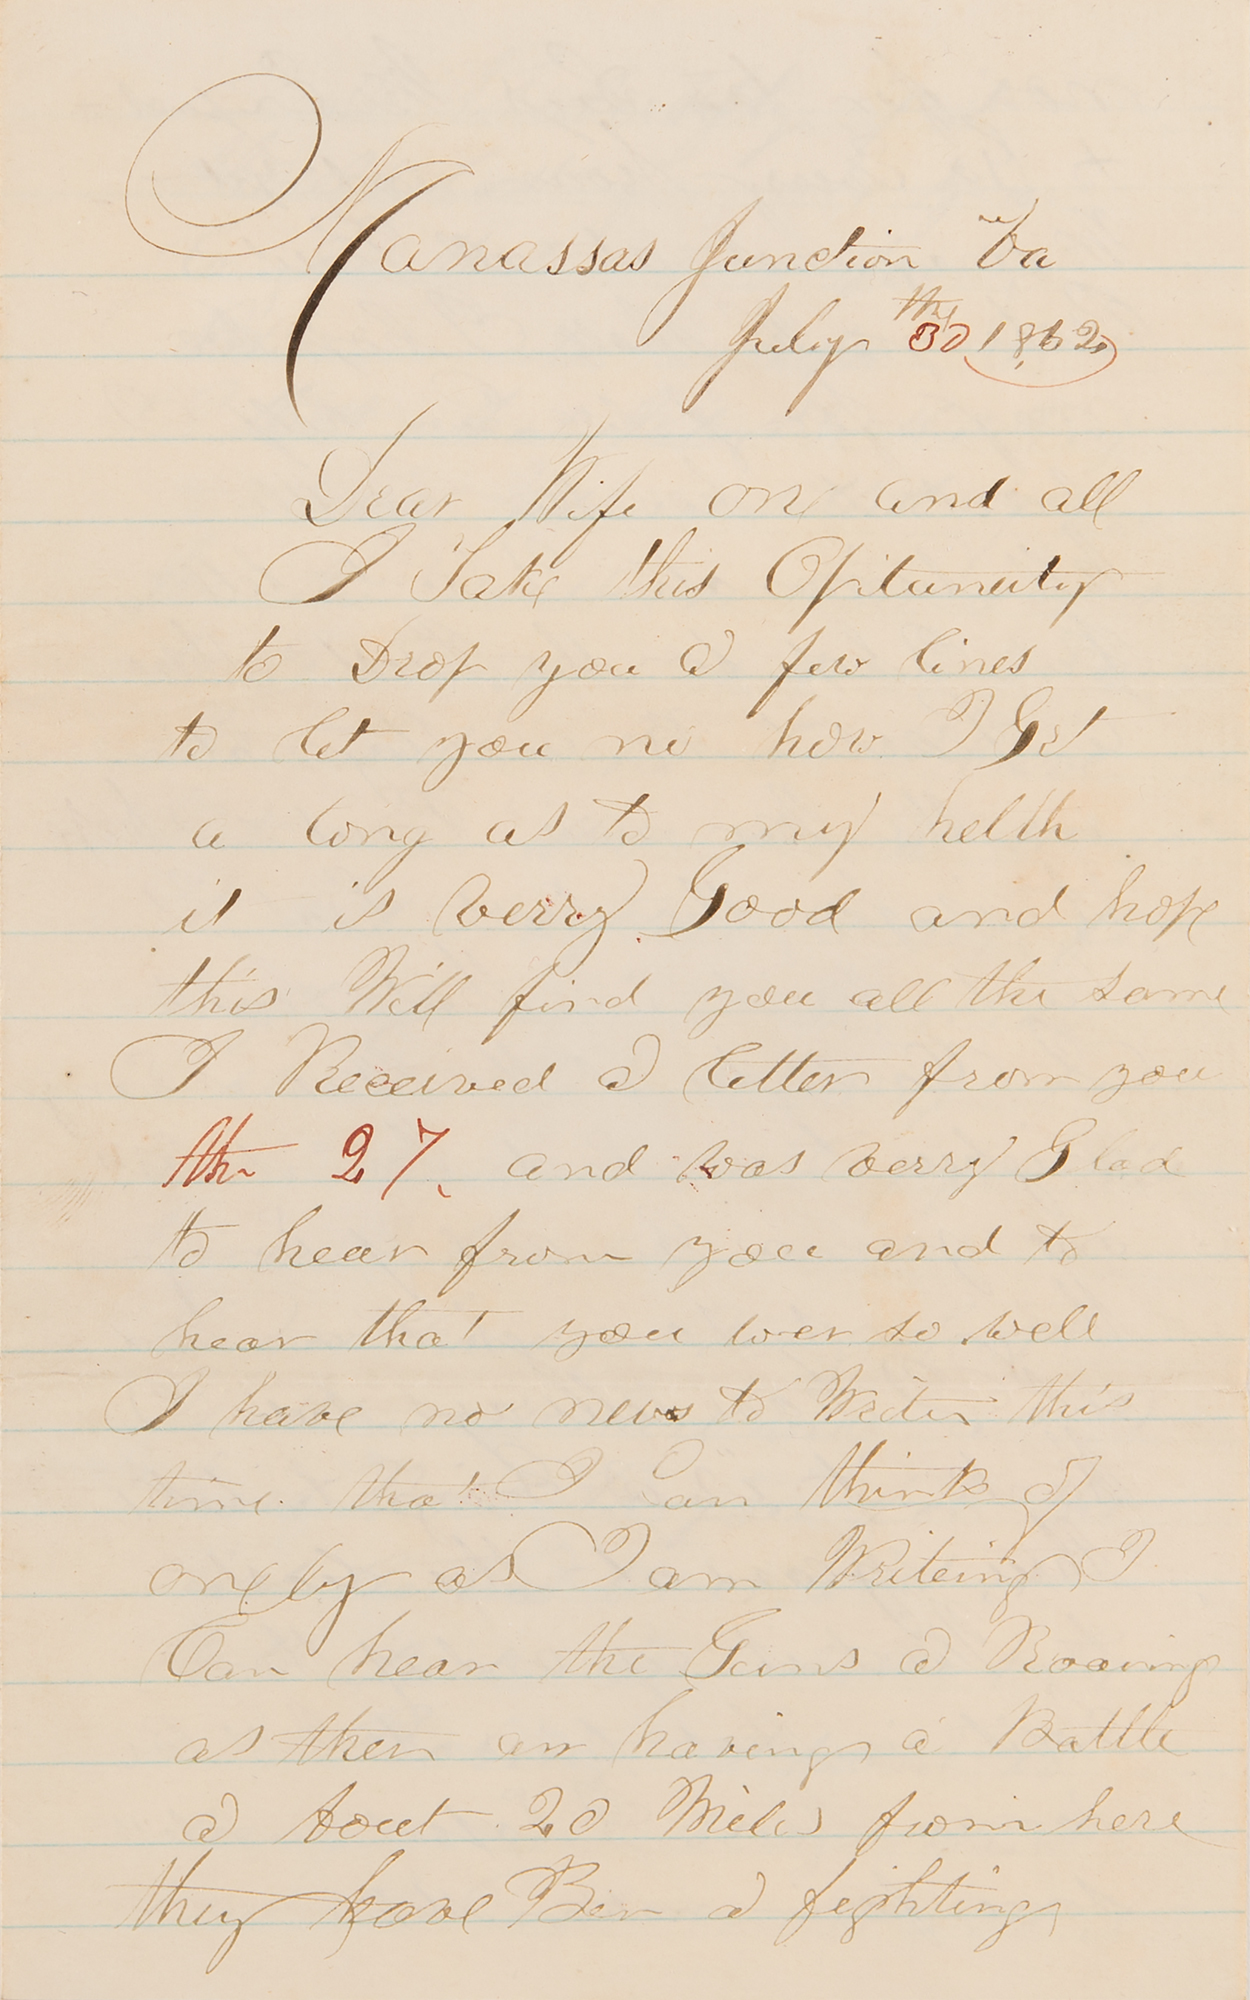 Manassas Junction Va
July the 30 1862
Dear Wife one and all
I Take this Opitunity
to Drop you a few lines
to let you no how I Get
a long as to my helth
it is verry Good and hope
this Will find you all the same
I Received a letter from you
the 27, and was verry Glad
to hear from you and to
hear that you wer so well
I have no news to Write this
time that I Can think of
onely as I am Writeing I
Can hear the Guns a Roaring
as ther are haveing a Battle
a bout 20 Miles from here
they have Ben a fighting